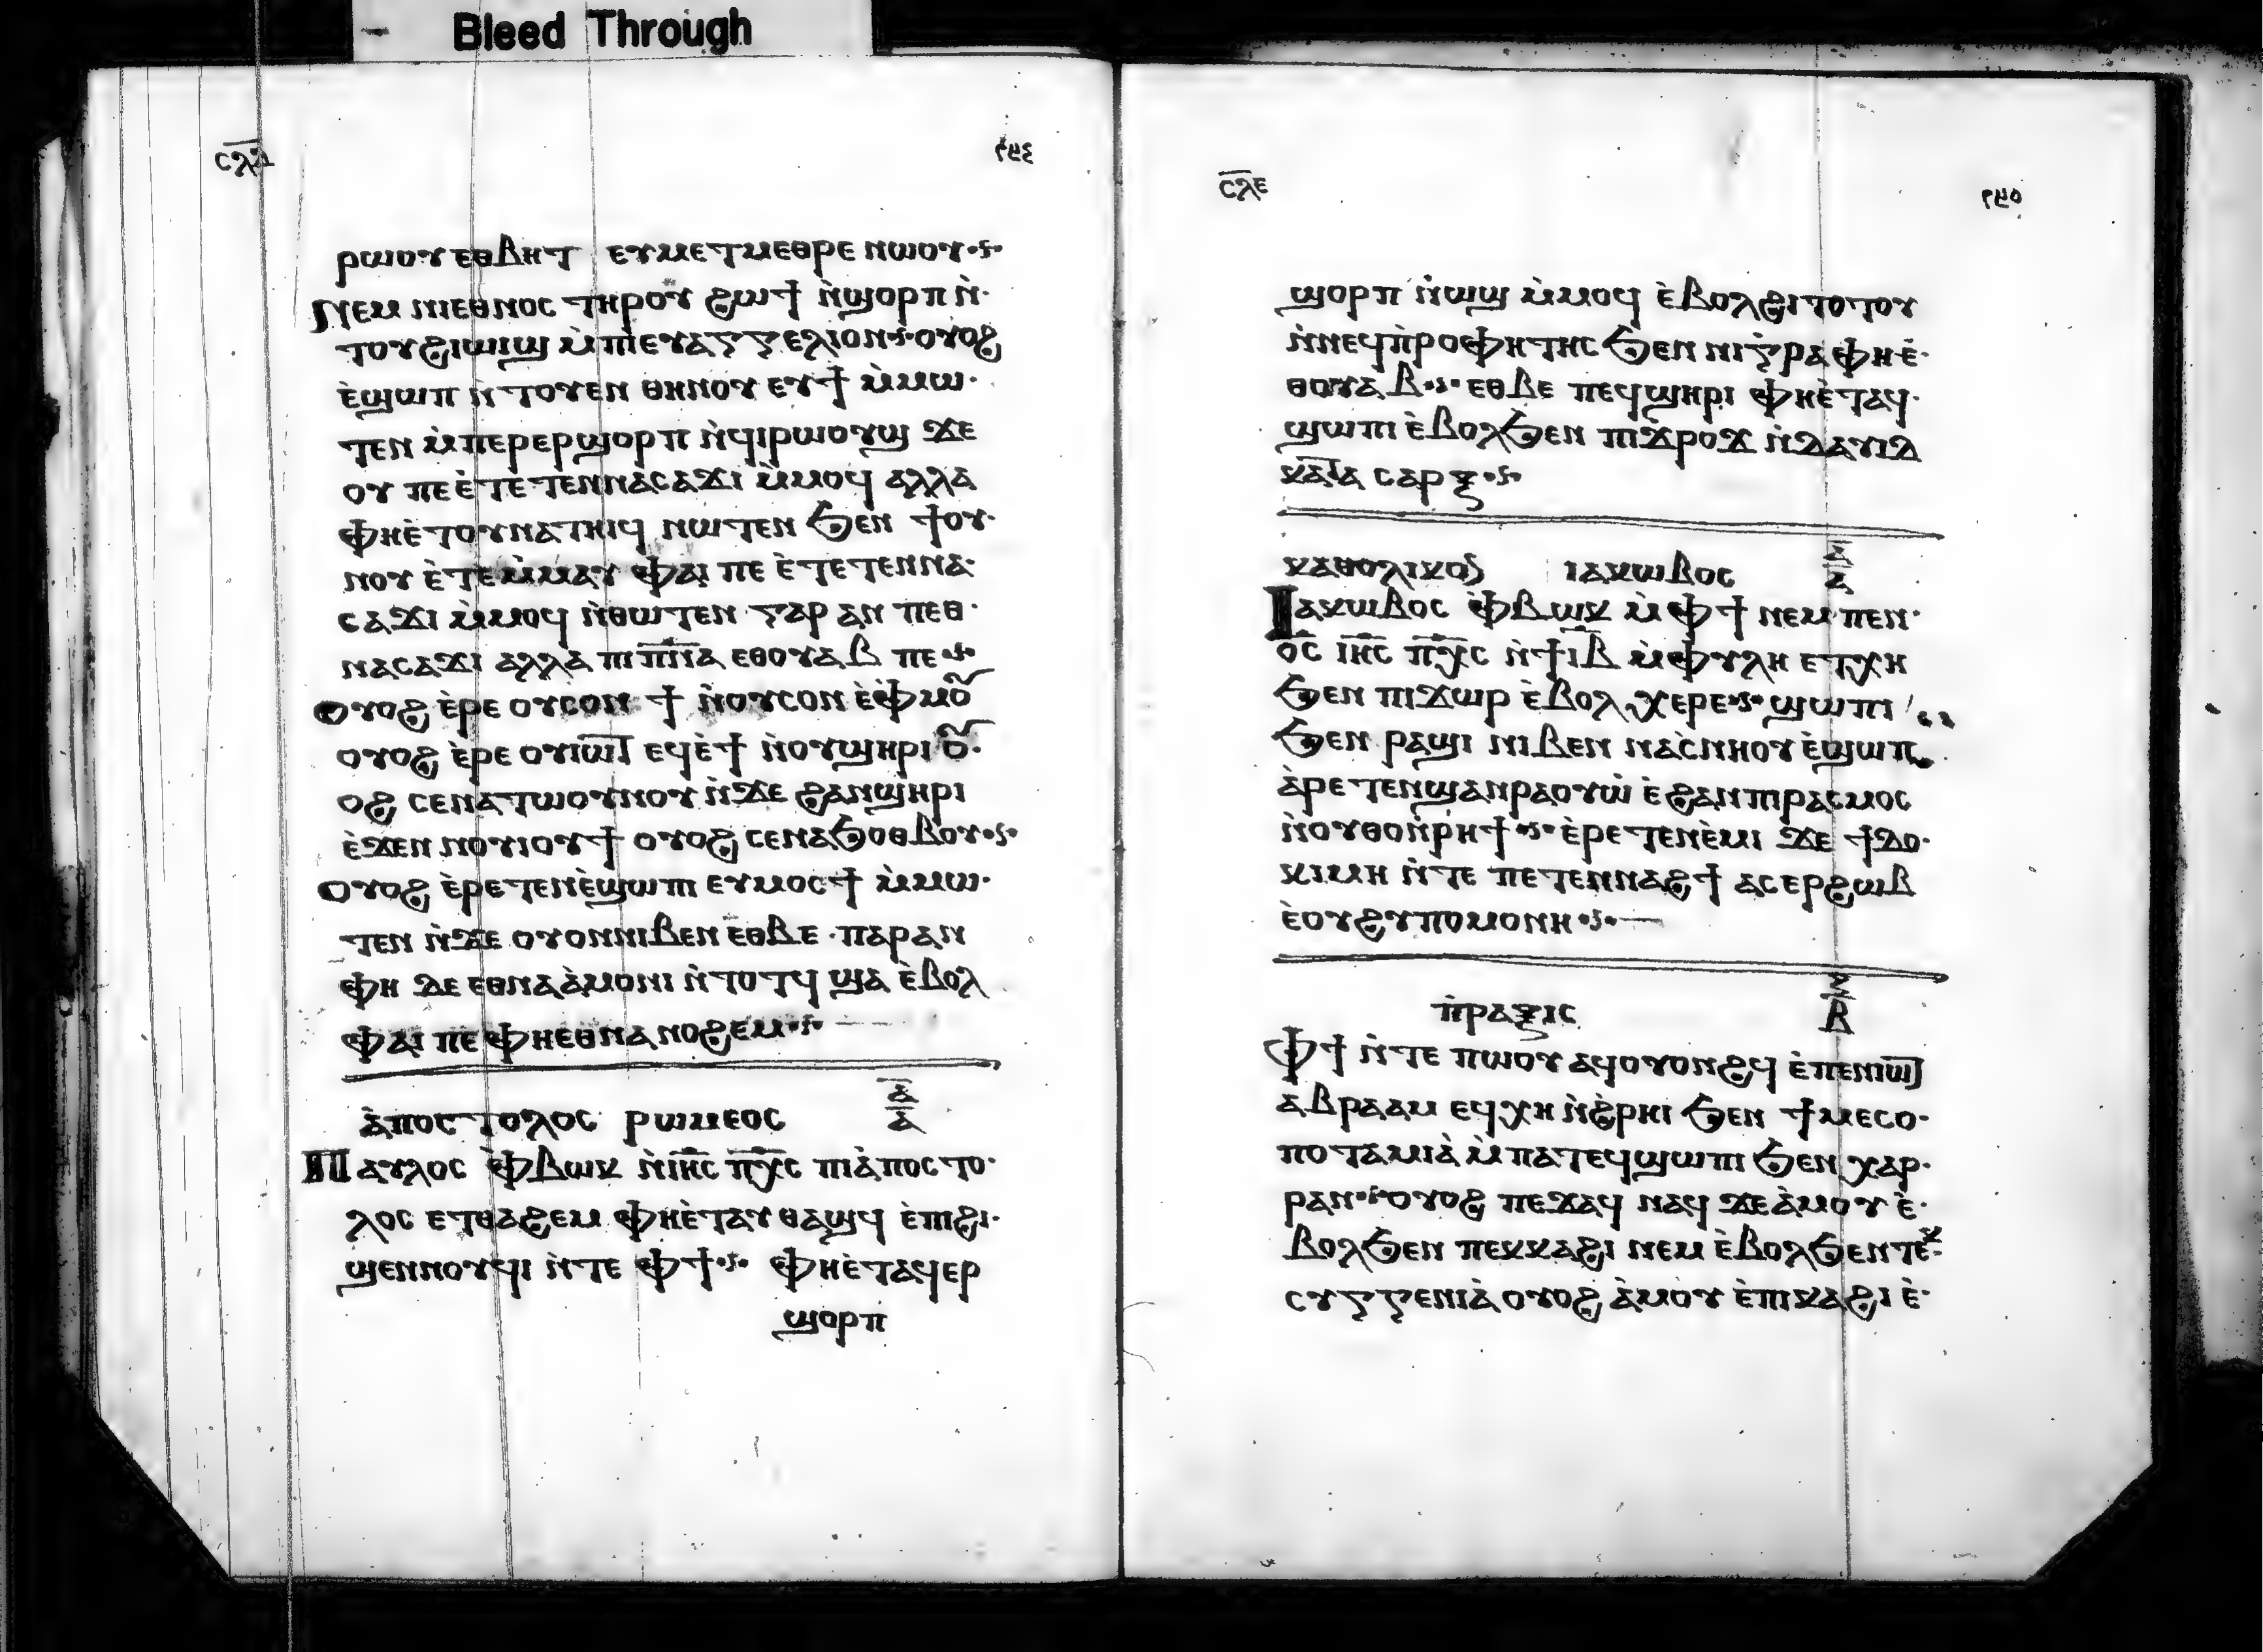 Bleed Through
ⲥⲗⲇ
ⲣⲱⲟⲩ ⲉⲑⲃⲏⲧ ⲉⲩⲙⲉⲧⲙⲉⲑⲣⲉ ⲛⲱⲟⲩ
ⲛⲉⲙ ⲛⲓⲉⲑⲛⲟⲥ ⲧⲏⲣⲟⲩ ϩⲱϯ ⲛ̀ϣⲟⲣⲡ ⲛ̀
ⲧⲟⲩϩⲓⲱⲓϣ ⲙ̀ⲡⲓⲉⲩⲁⲅⲅⲉⲗⲓⲟⲛ ⲟⲩⲟϩ
ⲉ̀ϣⲱⲡ ⲛ̀ⲧⲟⲩⲉⲛ ⲑⲏⲛⲟⲩ ⲉⲩϯ ⲙ̀ⲙⲱ
ⲧⲉⲛ ⲙ̀ⲡⲉⲣⲉⲣϣⲟⲣⲡ ⲛ̀ϥⲓⲣⲱⲟⲩϣ ϫⲉ
ⲟⲩ ⲡⲉ ⲉ̀ⲧⲉⲧⲉⲛⲛⲁⲥⲁϫⲓ ⲙ̀ⲙⲟϥ ⲁⲗⲗⲁ
ⲫⲏⲉ̀ⲧⲟⲩⲛⲁⲧⲏⲓϥ ⲛⲱⲧⲉⲛ ϧⲉⲛ ϯⲟⲩ
ⲛⲟⲩ ⲉ̀ⲧⲉⲙ̀ⲙⲁⲩ ⲫⲁⲓ ⲡⲉ ⲉ̀ⲧⲉⲧⲉⲛⲛⲁ
ⲥⲁϫⲓ ⲙ̀ⲙⲟϥ ⲛ̀ⲑⲱⲧⲉⲛ ⲅⲁⲣ ⲁⲛ ⲡⲉⲑ
ⲛⲁⲥⲁϫⲓ ⲁⲗⲗⲁ ⲡⲓⲡ̅ⲛ̅ⲁ ⲉⲑⲟⲩⲁⲃ ⲡⲉ
ⲟⲩⲟϩ ⲉ̀ⲣⲉ ⲟⲩⲥⲟⲛ ϯ ⲛ̀ⲟⲩⲥⲟⲛ ⲉ̀ⲫⲙⲟⲩ
ⲟⲩⲟϩ ⲉ̀ⲣⲉ ⲟⲩⲓⲱⲧ ⲉϥⲉ̀ϯ ⲛ̀ⲟⲩϣⲏⲣⲓ ⲟⲩ
ⲟϩ ⲥⲉⲛⲁⲧⲱⲟⲩⲛⲟⲩ ⲛ̀ϫⲉ ϩⲁⲛϣⲏⲣⲓ
ⲉ̀ϫⲉⲛ ⲛⲟⲩⲓⲟⲩϯ ⲟⲩⲟϩ ⲥⲉⲛⲁϧⲟⲑⲃⲟⲩ
ⲟⲩⲟϩ ⲉ̀ⲣⲉⲧⲉⲛⲉ̀ϣⲱⲡⲓ ⲉⲩⲙⲟⲥϯ ⲙ̀ⲙⲱ
ⲧⲉⲛ ⲛ̀ϫⲉ ⲟⲩⲟⲛⲛⲓⲃⲉⲛ ⲉⲑⲃⲉ ⲡⲁⲣⲁⲛ
ⲫⲏ ⲇⲉ ⲉⲑⲛⲁⲁ̀ⲙⲟⲛⲓ ⲛ̀ⲧⲟⲧϥ ϣⲁ ⲉ̀ⲃⲟⲗ
ⲫⲁⲓ ⲡⲉ ⲫⲏⲉⲑⲛⲁⲛⲟϩⲉⲙ
ⲁ̀ⲡⲟⲥⲧⲟⲗⲟⲥ ⲣⲱⲙⲉⲟⲥ ⲁ̅ ⲁ̅
ⲡⲁⲩⲗⲟⲥ ⲫ̀ⲃⲱⲕ ⲛ̀ⲓⲏ̅ⲥ ⲡⲭ̅ⲥ ⲡⲓⲁ̀ⲡⲟⲥⲧⲟ
ⲗⲟⲥ ⲉⲧⲑⲁϩⲉⲙ ⲫⲏⲉ̀ⲧⲁⲩⲑⲁϣϥ ⲉ̀ⲡⲓϩⲓ
ϣⲉⲛⲛⲟⲩϥⲓ ⲛ̀ⲧⲉ ⲫϯ ⲫⲏⲉ̀ⲧⲁϥⲉⲣ
ϣⲟⲣⲡ
ⲥⲗⲉ
ϣⲟⲣⲡ ⲛ̀ⲱϣ ⲙ̀ⲙⲟϥ ⲉ̀ⲃⲟⲗϩⲓⲧⲟⲧⲟⲩ
ⲛ̀ⲛⲉϥⲡ̀ⲣⲟⲫⲏⲧⲏⲥ ϧⲉⲛ ⲛⲓⲅⲣⲁⲫⲏ ⲉ̀
ⲑⲟⲩⲁⲃ ⲉⲑⲃⲉ ⲡⲉϥϣⲏⲣⲓ ⲫⲏⲉ̀ⲧⲁϥ
ϣⲱⲡⲓ ⲉ̀ⲃⲟⲗϧⲉⲛ ⲡⲓϫⲣⲟϫ ⲛ̀ⲇⲁⲩⲓⲇ
ⲕⲁⲧⲁ ⲥⲁⲣⲝ
ⲕⲁⲑⲟⲗⲓⲕⲟⲛ ⲓⲁⲕⲱⲃⲟⲥ ⲁ̅ ⲁ̅
ⲓⲁⲕⲱⲃⲟⲥ ⲫ̀ⲃⲱⲕ ⲙ̀ⲫϯ ⲛⲉⲙ ⲡⲉⲛ
ⲟ̅ⲥ ⲓⲏ̅ⲥ ⲡⲭ̅ⲥ ⲛ̀ϯⲓ̅ⲃ ⲙ̀ⲫⲩⲗⲏ ⲉⲧⲭⲏ
ϧⲉⲛ ⲡⲓϫⲱⲣ ⲉ̀ⲃⲟⲗ ⲭⲉⲣⲉ ϣⲱⲡⲓ
ϧⲉⲛ ⲣⲁϣⲓ ⲛⲓⲃⲉⲛ ⲛⲁⲥ̀ⲛⲏⲟⲩ ⲉ̀ϣⲱⲡ
ⲁ̀ⲣⲉⲧⲉⲛϣⲁⲛⲣⲁⲟⲩⲱ̀ ⲉ̀ϩⲁⲛⲡⲓⲣⲁⲥⲙⲟⲥ
ⲛ̀ⲟⲩⲑⲟⲛ̀ⲣⲏϯ ⲉ̀ⲣⲉⲧⲉⲛⲉ̀ⲙⲓ ϫⲉ ϯⲇⲟ
ⲕⲓⲙⲏ ⲛ̀ⲧⲉ ⲡⲉⲧⲉⲛⲛⲁϩϯ ⲁⲥⲉⲣϩⲱⲃ
ⲉ̀ⲟⲩϩⲩⲡⲟⲙⲟⲛⲏ
ⲡ̀ⲣⲁⲝⲓⲥ ⲍ̅ ⲃ̅
ⲫϯ ⲛ̀ⲧⲉ ⲡⲱⲟⲩ ⲁϥⲟⲩⲟⲛϩϥ ⲉ̀ⲡⲉⲛⲓⲱⲧ
ⲁⲃⲣⲁⲁⲙ ⲉϥⲭⲏ ⲛ̀ϩ̀ⲣⲏⲓ ϧⲉⲛ ϯⲙⲉⲥⲟ
ⲡⲟⲧⲁⲙⲓⲁ̀ ⲙ̀ⲡⲁⲧⲉϥϣⲱⲡⲓ ϧⲉⲛ ⲭⲁⲣ
ⲣⲁⲛ ⲟⲩⲟϩ ⲡⲉϫⲁϥ ⲛⲁϥ ϫⲉ ⲁ̀ⲙⲟⲩ ⲉ̀
ⲃⲟⲗϧⲉⲛ ⲡⲉⲕⲕⲁϩⲓ ⲛⲉⲙ ⲉ̀ⲃⲟⲗϧⲉⲛ ⲧⲉⲕ
ⲥⲩⲅⲅⲉⲛⲓⲁ̀ ⲟⲩⲟϩ ⲁ̀ⲙⲟⲩ ⲉ̀ⲡⲓⲕⲁϩⲓ ⲉ̀